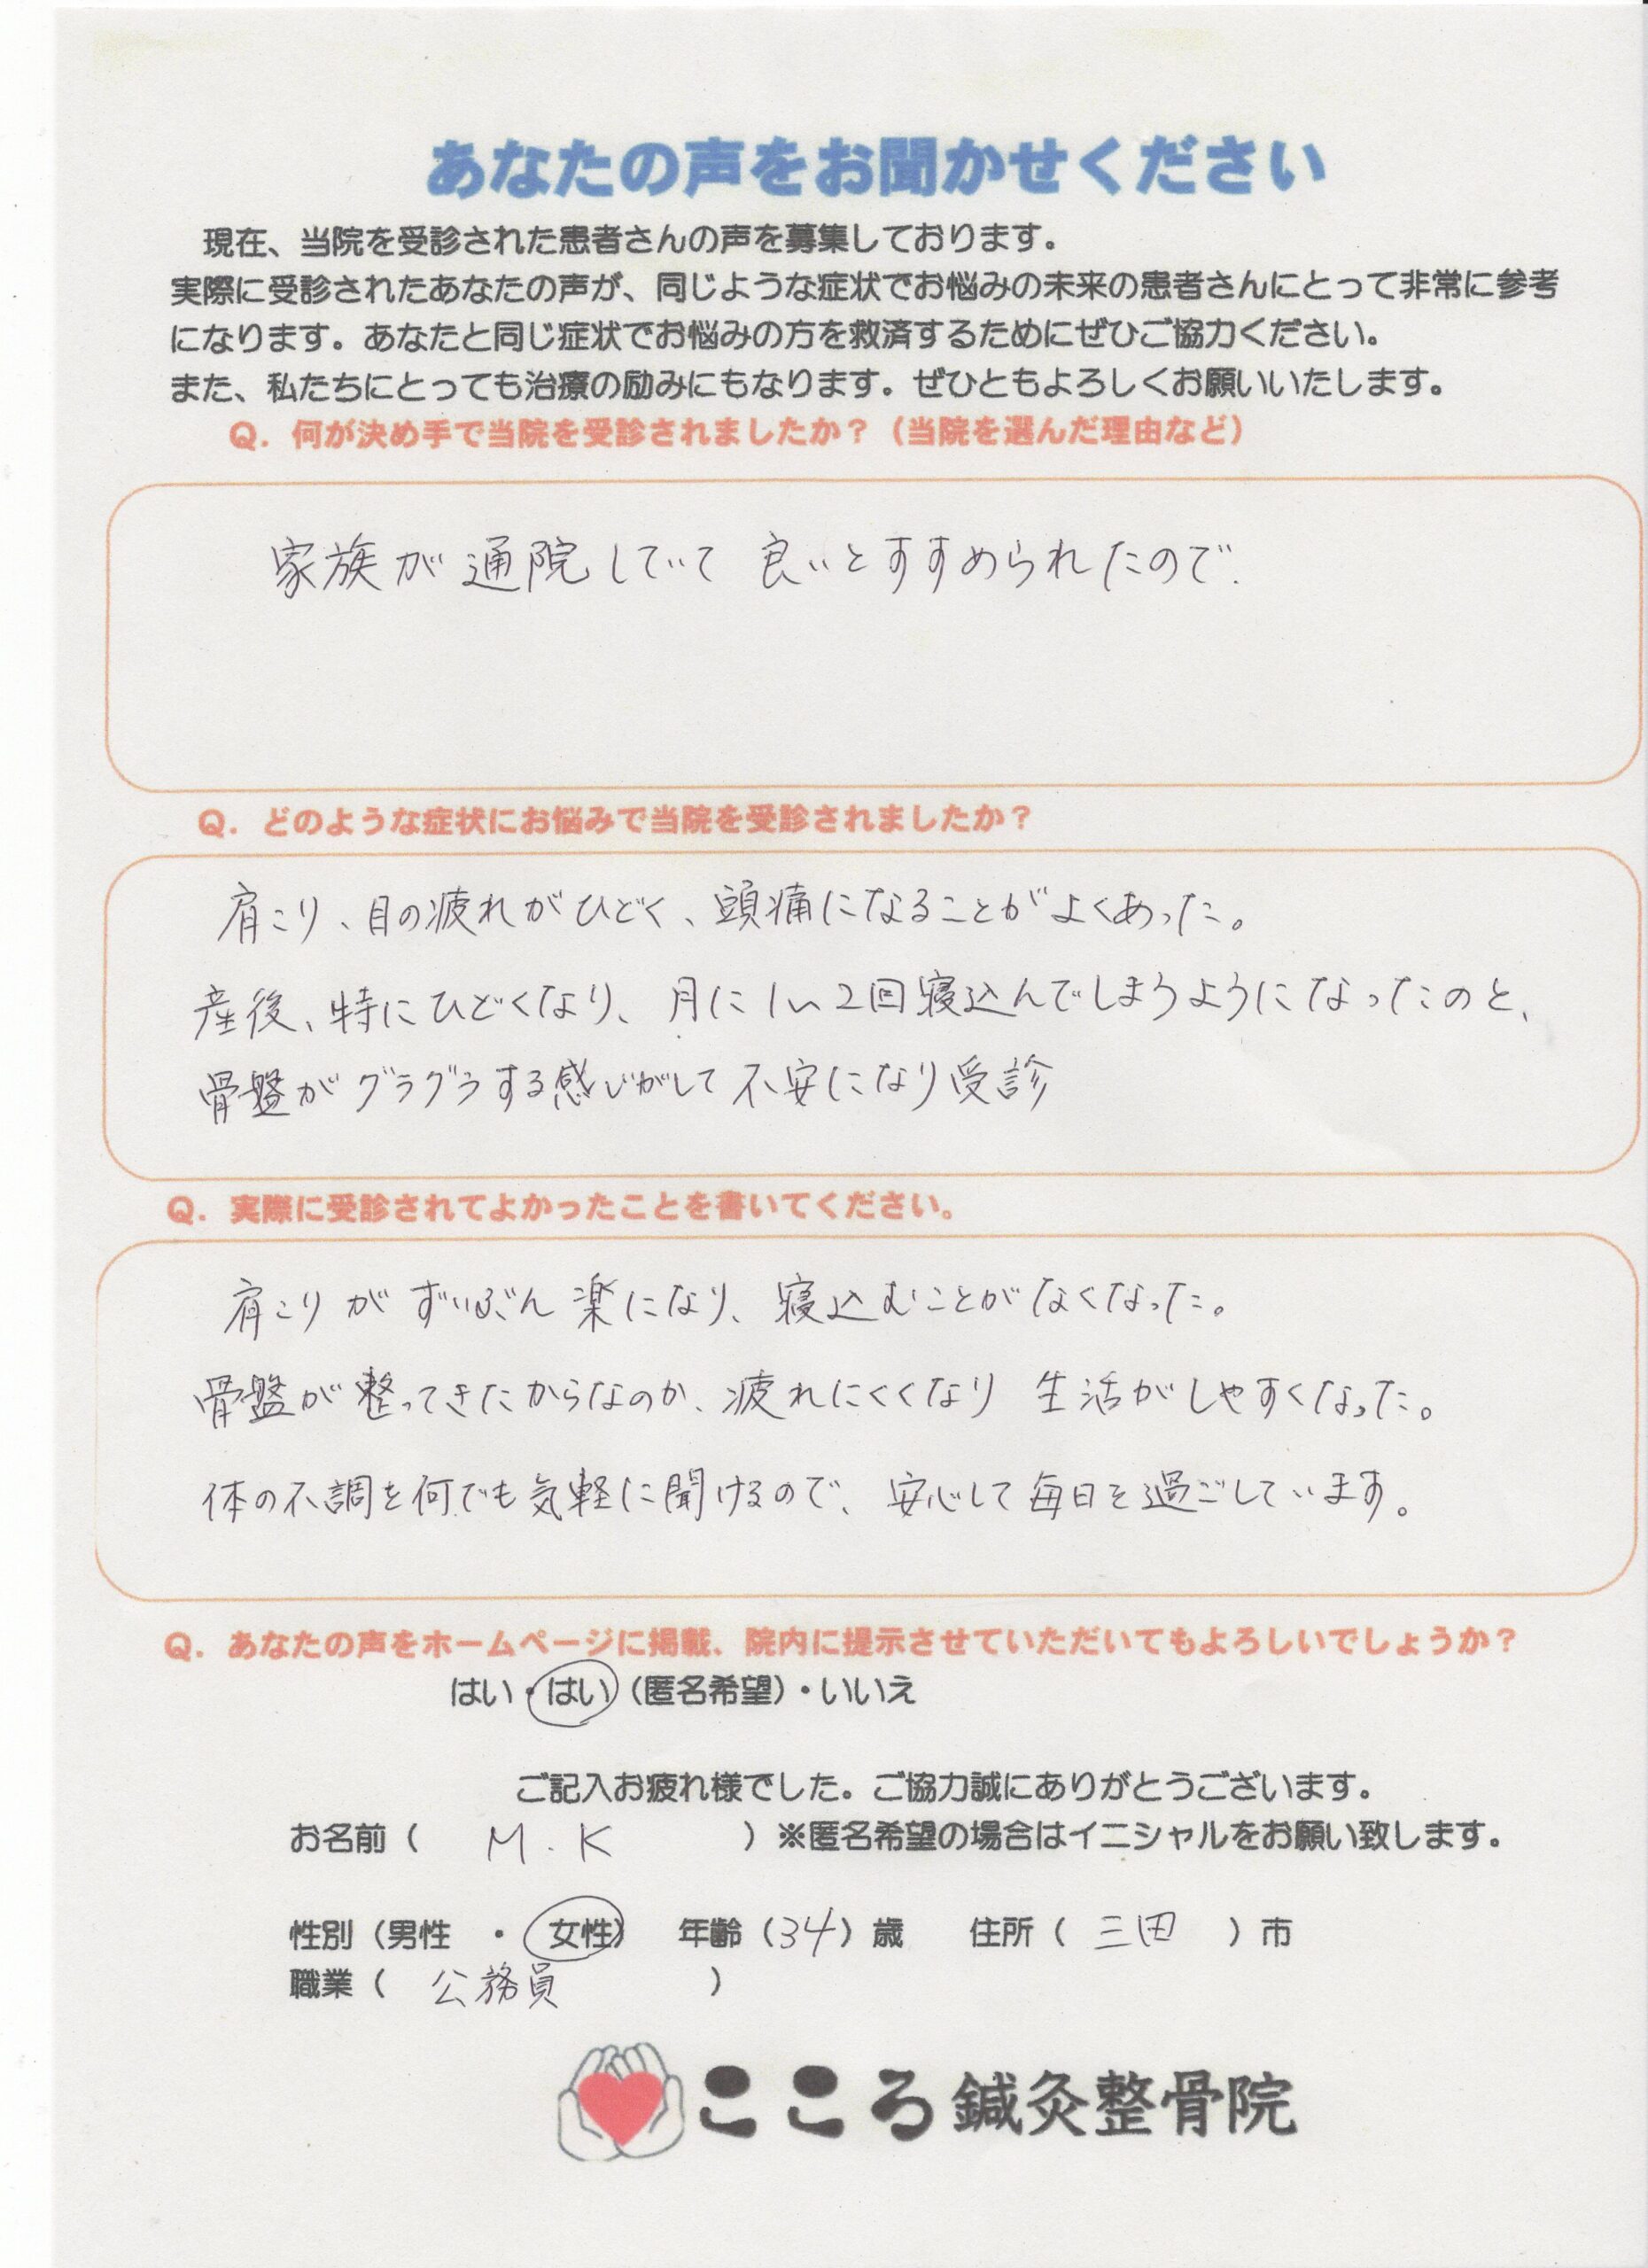 あなたの声をお聞かせください
現在、当院を受診された患者さんの声を募集しております。
実際に受診されたあなたの声が、同じような症状でお悩みの未来の患者さんにとって非常に参考
になります。あなたと同じ症状でお悩みの方を救済するためにぜひご協力ください。
また、私たちにとっても治療の励みにもなります。ぜひともよろしくお願いいたします。
Q. 何が決め手で当院を受診されましたか？（当院を選んだ理由など）
家族が通院していて 良いとすすめられたので.
Q. どのような症状にお悩みで当院を受診されましたか？
肩こり、目の疲れがひどく、頭痛になることがよくあった。
産後、特にひどくなり、月に1〜2回寝込んでしまうようになったのと、
骨盤がグラグラする感じがして不安になり受診
Q. 実際に受診されてよかったことを書いてください。
肩こりがずいぶん楽になり、寝込むことがなくなった。
骨盤が整ってきたからなのか、疲れにくくなり 生活がしやすくなった。
体の不調を何でも気軽に聞けるので、安心して毎日を過ごしています。
Q. あなたの声をホームページに掲載、院内に提示させていただいてもよろしいでしょうか？
はい・はい（匿名希望）・いいえ
ご記入お疲れ様でした。ご協力誠にありがとうございます。
お名前（ M.K ）※匿名希望の場合はイニシャルをお願い致します。
性別（男性 ・ 女性） 年齢（34）歳 住所（ 三田 ）市
職業（ 公務員 ）
こころ鍼灸整骨院